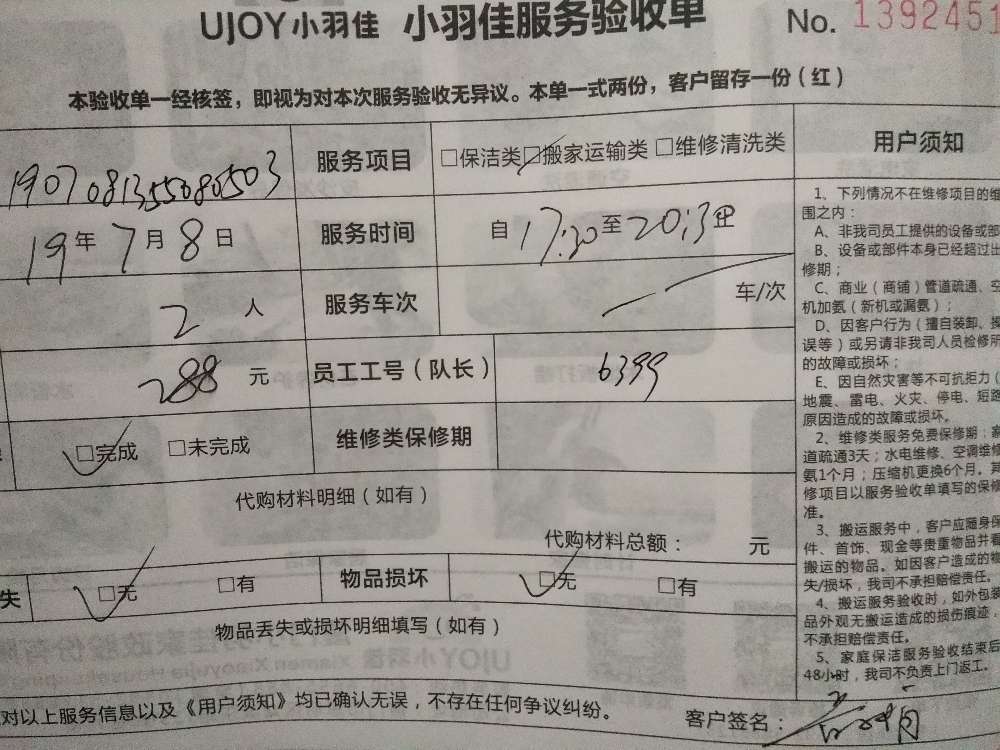 UJOY小羽佳 小羽佳服务验收单 No. 1392451
本验收单一经核签，即视为对本次服务验收无异议。本单一式两份，客户留存一份（红）
1907081355080503 服务项目 □保洁类 □搬家运输类 □维修清洗类
19年7月8日 服务时间 自17:30至20:30
2人 服务车次 车/次
288元 员工工号（队长） 6399
□完成 □未完成 维修类保修期
代购材料明细（如有）
代购材料总额： 元
失 □无 □有 物品损坏 □无 □有
物品丢失或损坏明细填写（如有）
对以上服务信息以及《用户须知》均已确认无误，不存在任何争议纠纷。
客户签名：
用户须知
1、下列情况不在维修项目的维
围之内：
A、非我司员工提供的设备或部
B、设备或部件本身已经超过出
修期；
C、商业（商铺）管道疏通、空
机加氨（新机或漏氨）；
D、因客户行为（擅自装卸、操
误等）或另请非我司人员检修所
的故障或损坏；
E、因自然灾害等不可抗拒力（
地震、雷电、火灾、停电、短路
原因造成的故障或损坏。
2、维修类服务免费保修期：家
道疏通3天；水电维修、空调维修
氨1个月；压缩机更换6个月。其
修项目以服务验收单填写的保修
准。
3、搬运服务中，客户应随身保
件、首饰、现金等贵重物品并看
搬运的物品。如因客户造成的物
失/损坏，我司不承担赔偿责任。
4、搬运服务验收时，如外包装
品外观无搬运造成的损伤痕迹，
不承担赔偿责任。
5、家庭保洁服务验收结束后
48小时，我司不负责上门返工。